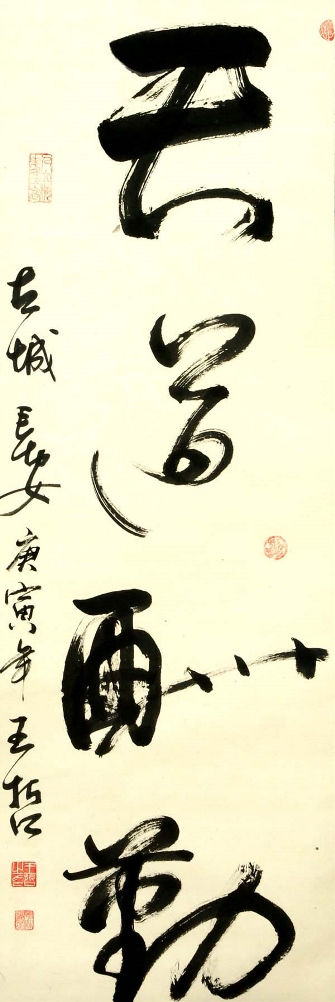 天道酬勤
古城長安庚寅年王哲